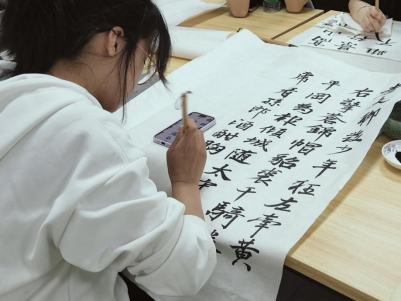 老夫聊發少年狂左牵黄
右擎蒼錦帽貂裘千騎
平岡為報傾城随太守
虎看孫郎酒酣胸